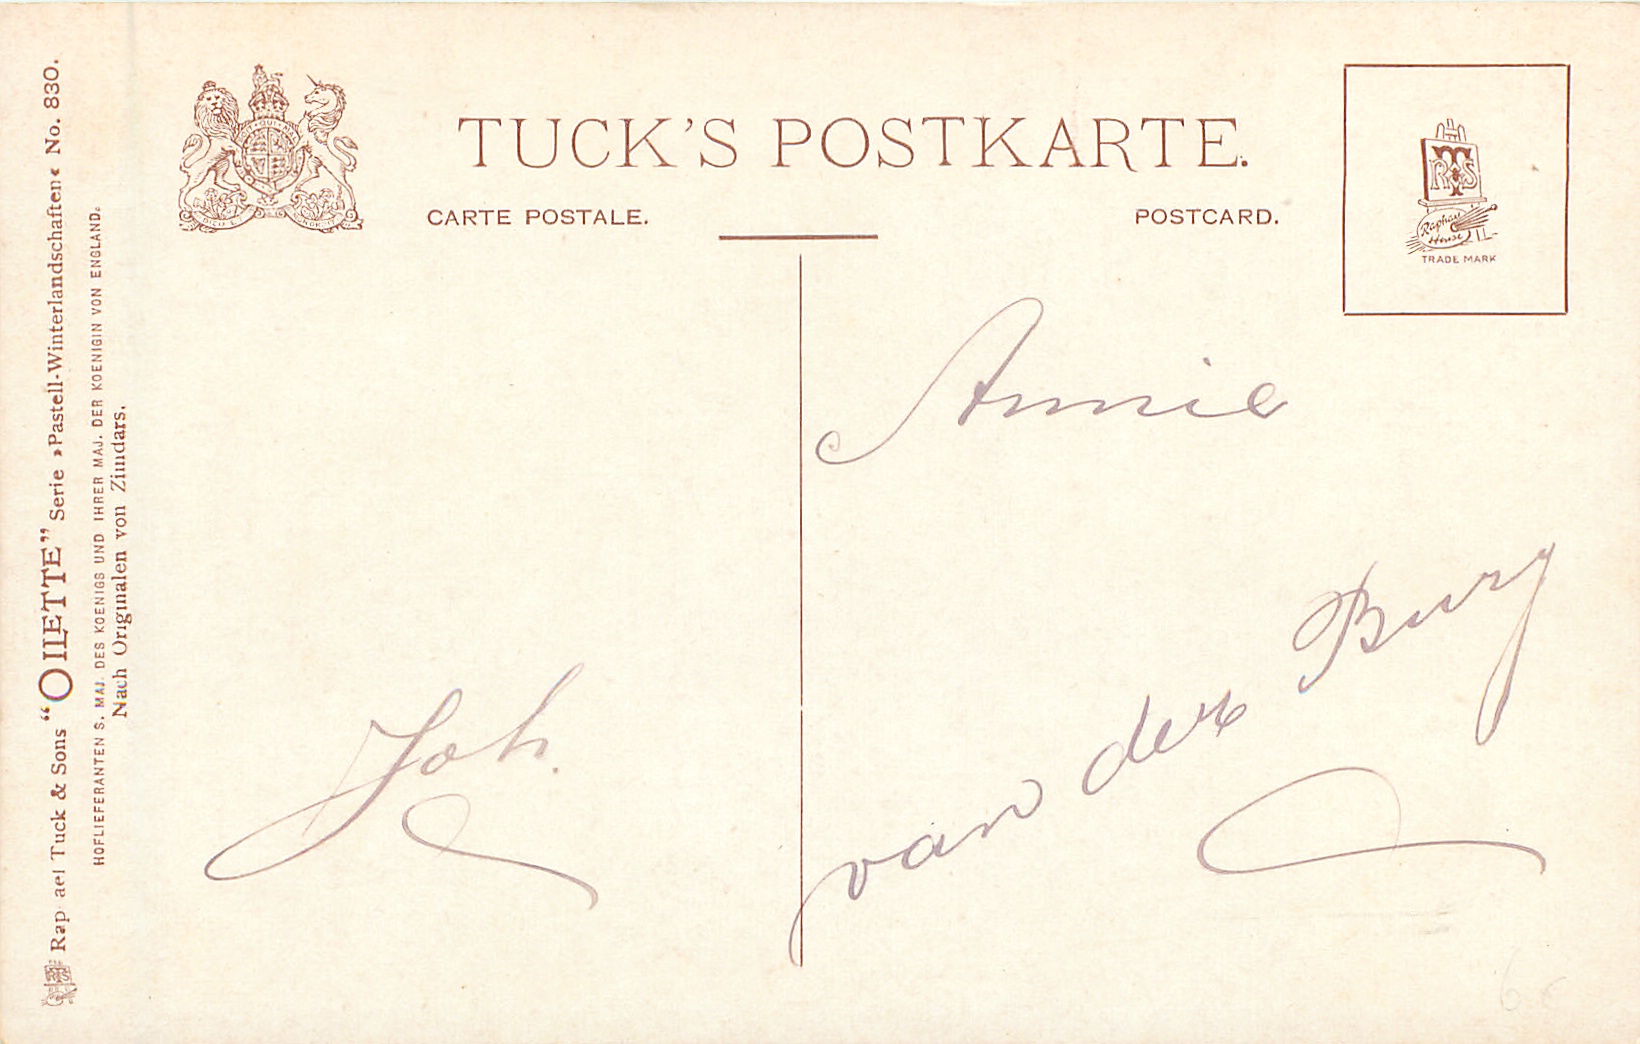 TUCK'S POSTKARTE.
CARTE POSTALE.
POSTCARD.
TRS
Raphael
House
TRADE MARK
Annie
van der Burg
Joh.
Rap ael Tuck & Sons “OILETTE” Serie »Pastell-Winterlandschaften« No. 830.
HOFLIEFERANTEN S. MAJ. DES KOENIGS UND IHRER MAJ. DER KOENIGIN VON ENGLAND.
Nach Originalen von Zimdars.